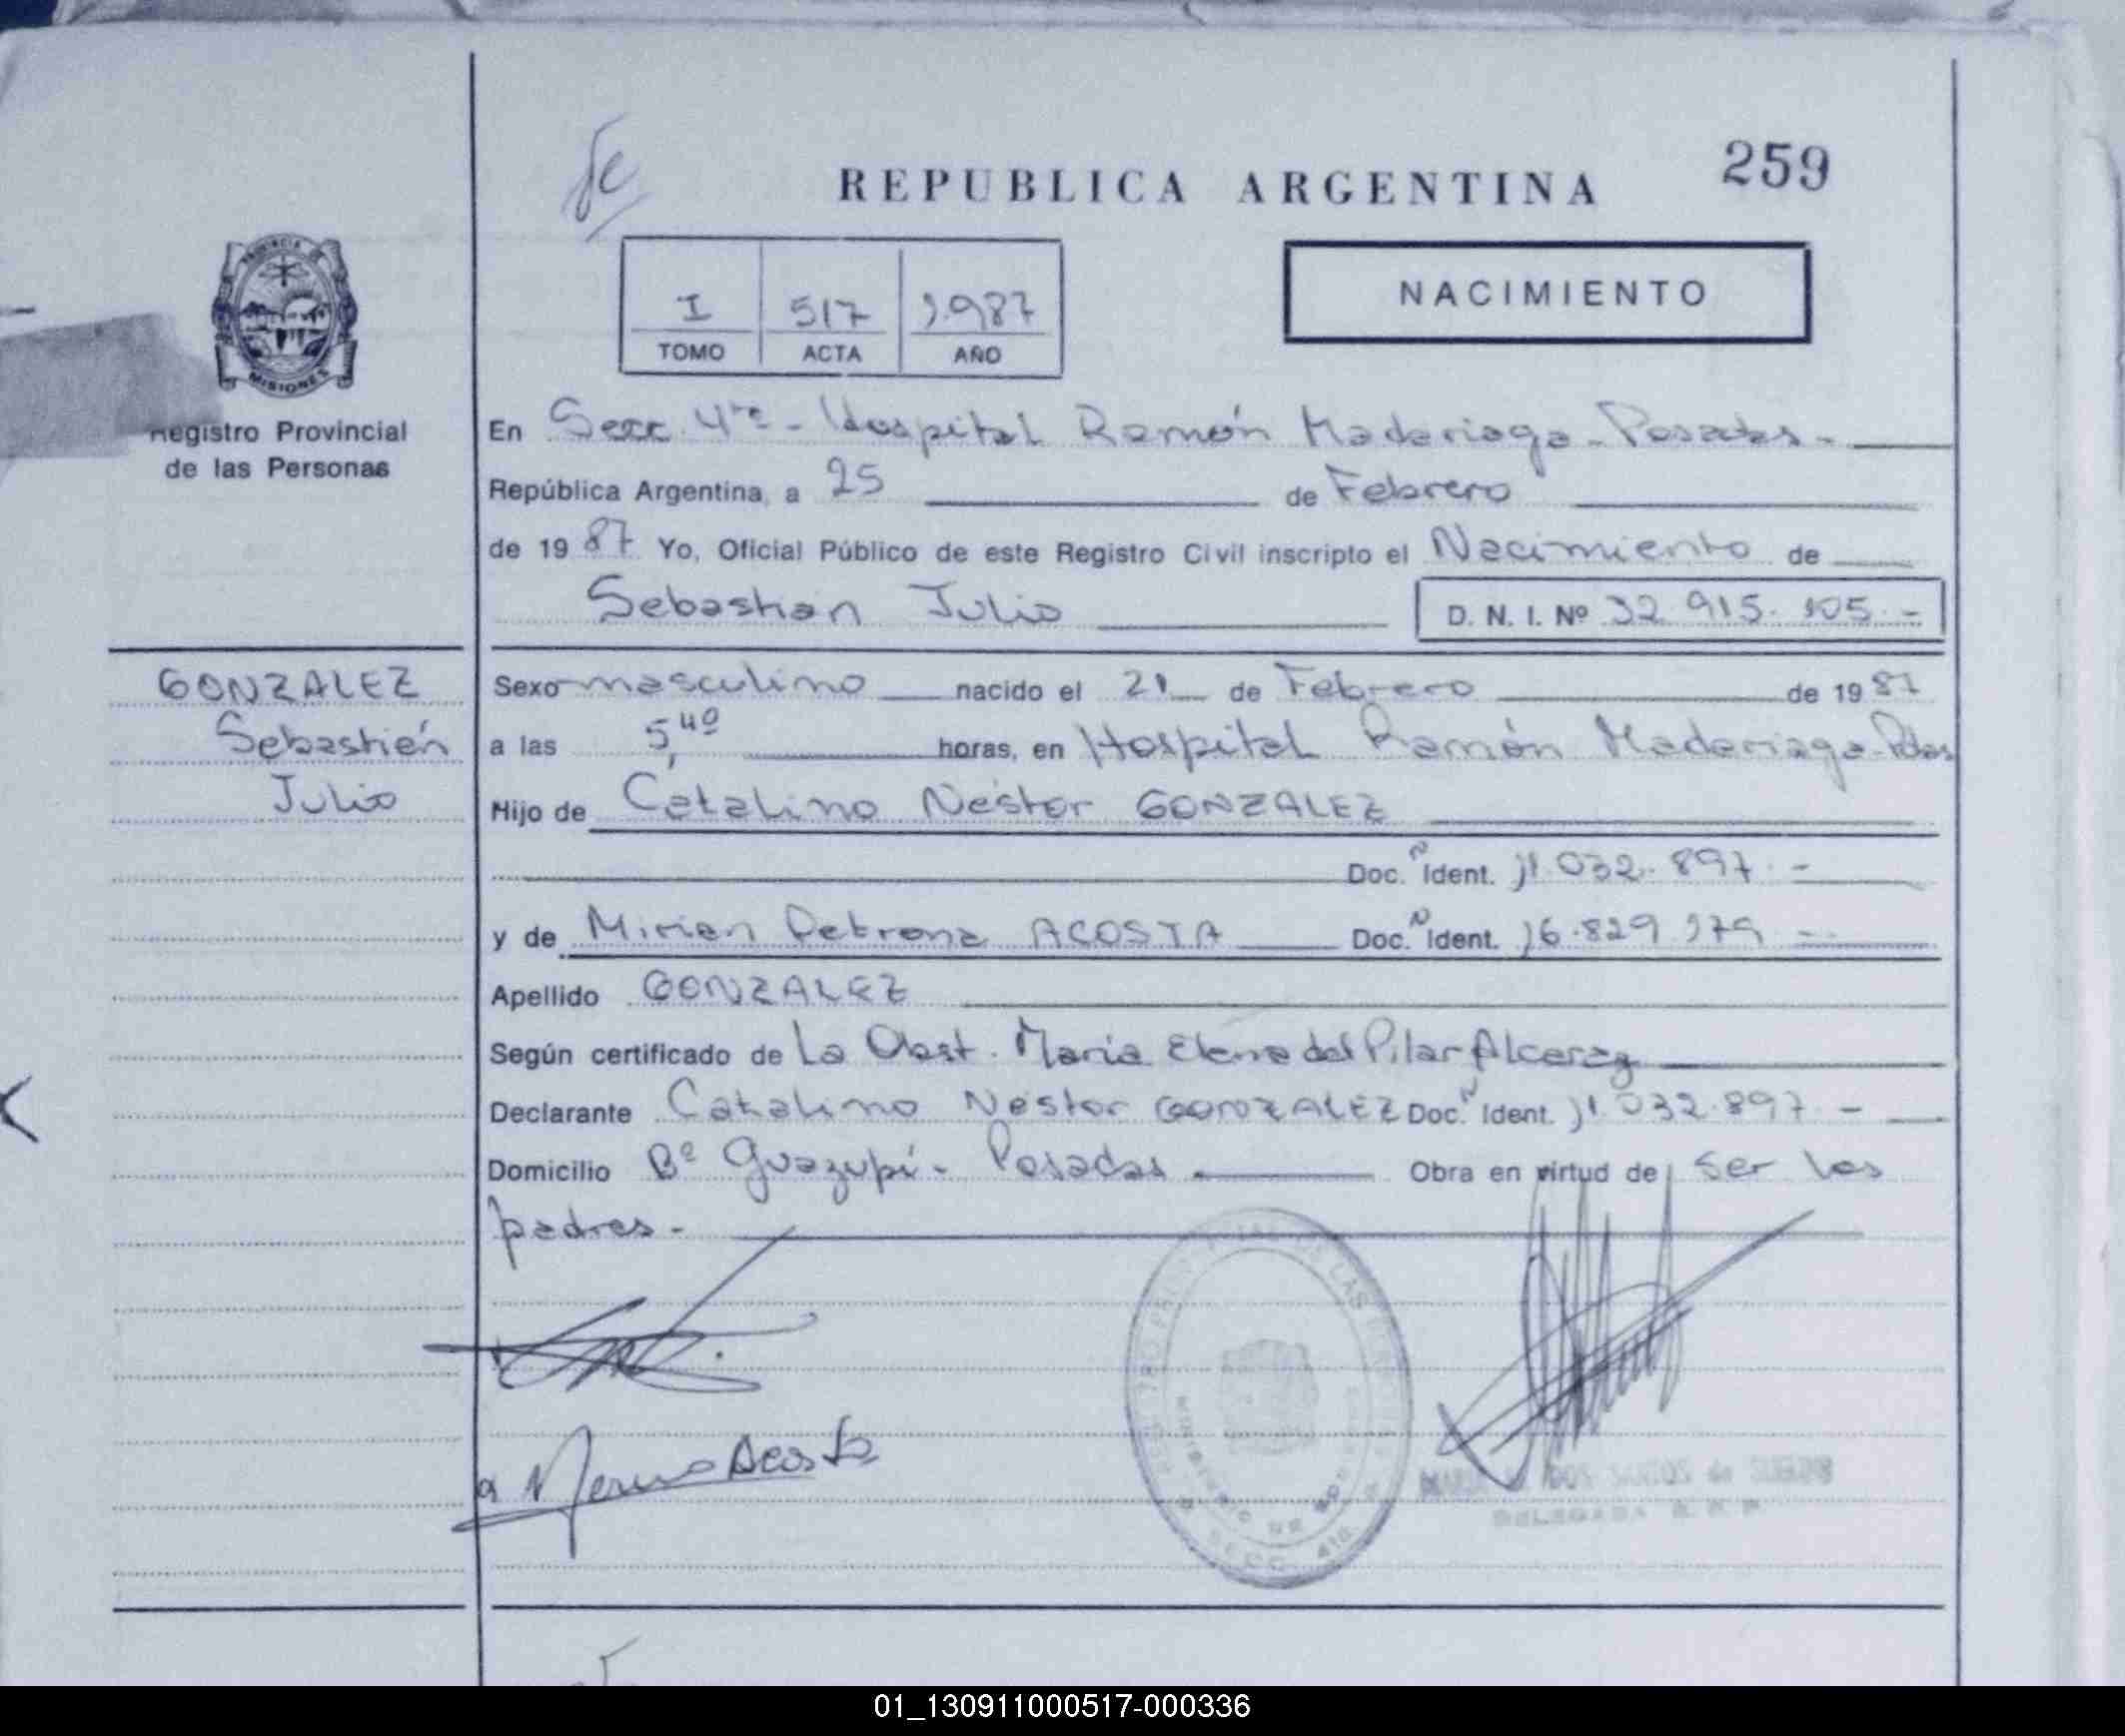 259
REPUBLICA ARGENTINA
NACIMIENTO
I 517 1.987
TOMO ACTA AÑO
PROVINCIA DE
MISIONES
Registro Provincial
de las Personas
En Secc. 4ta - Hospital Ramón Madariaga - Posadas -
República Argentina, a 25 de Febrero
de 1987 Yo, Oficial Público de este Registro Civil inscripto el Nacimiento de
Sebastian Julio D. N. I. Nº 32.915.105.-
GONZALEZ
Sebastián
Julio
Sexo masculino nacido el 21 de Febrero de 1987
a las 5,40 horas, en Hospital Ramón Madariaga-Pdas
Hijo de Catalino Nestor GONZALEZ
Doc. Ñ Ident. 11.032.897.-
y de Mirian Petrona ACOSTA Doc. Ñ Ident. 16.829.179 -
Apellido GONZALEZ
Según certificado de La Obst. María Elena del Pilar Alcaraz
Declarante Catalino Nestor GONZALEZ Doc. Ñ Ident. 11.032.897 -
Domicilio Bº Guazupí - Posadas Obra en virtud de Ser los
padres -
Acosta
MARIA DOS SANTOS de
DELEGADA R. P. P.
01_130911000517-000336